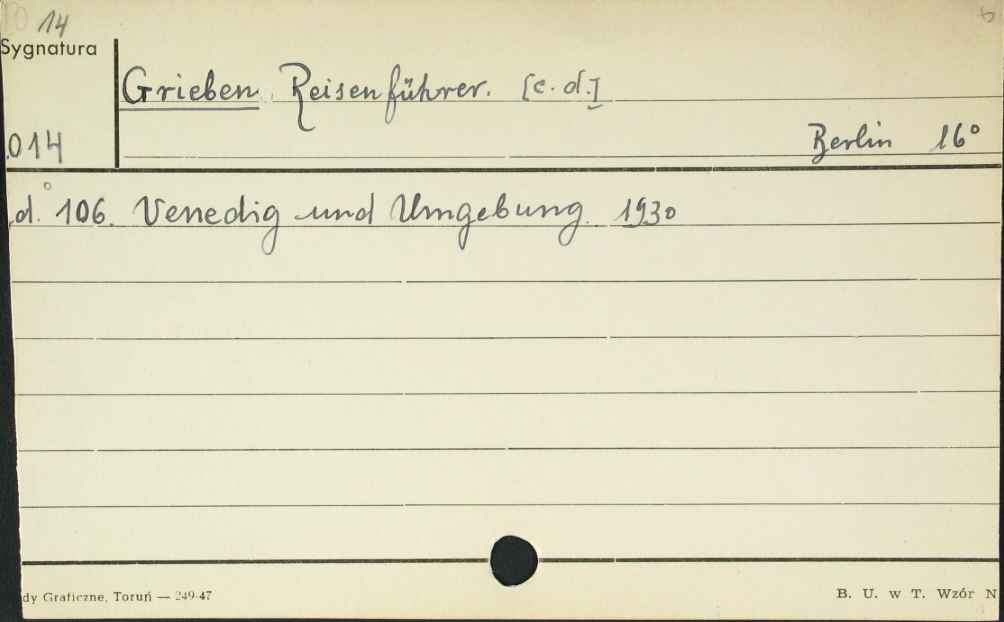 14
Sygnatura
Grieben Reisenführer. [c. d.]
014
Berlin 16°
d. 106. Venedig und Umgebung. 1930
dy Graficzne, Toruń — 249-47
B. U. w T. Wzór N